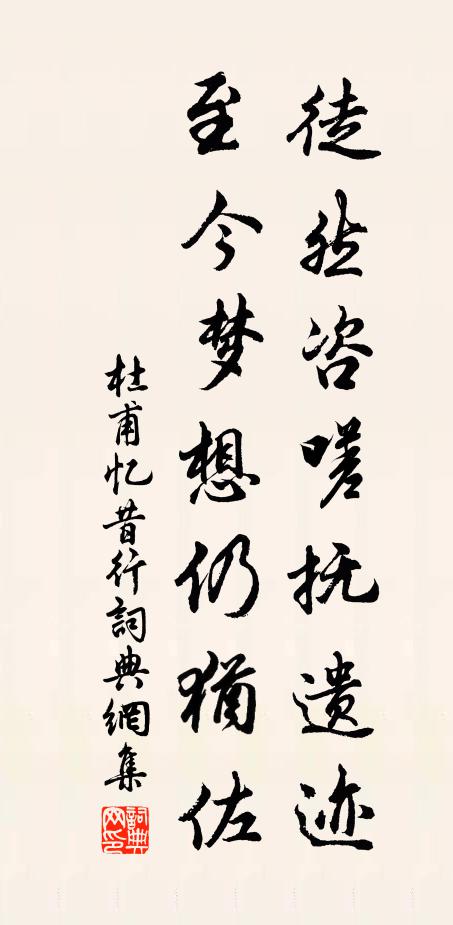 徒然咨嗟抚遗迹
至今梦想仍猶佐
杜甫忆昔行詞典網集
詞典网印